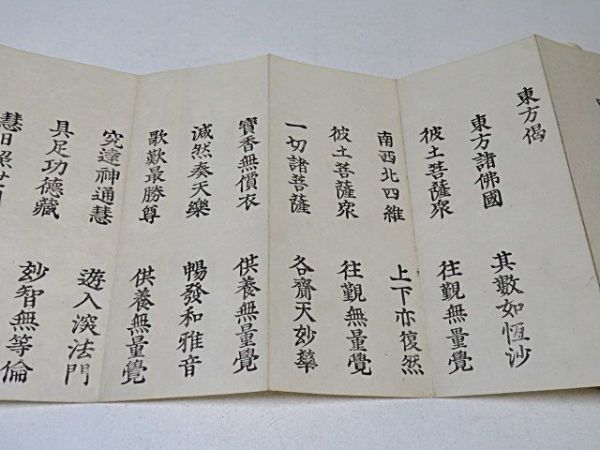 東方偈
東方諸佛國　其數如恆沙
彼土菩薩衆　往覲無量覺
南西北四維　上下亦復然
彼土菩薩衆　往覲無量覺
一切諸菩薩　各齎天妙華
寶香無價衣　供養無量覺
咸然奏天樂　暢發和雅音
歌歎最勝尊　供養無量覺
究達神通慧　遊入深法門
具足功德藏　妙智無等倫
慧日照世